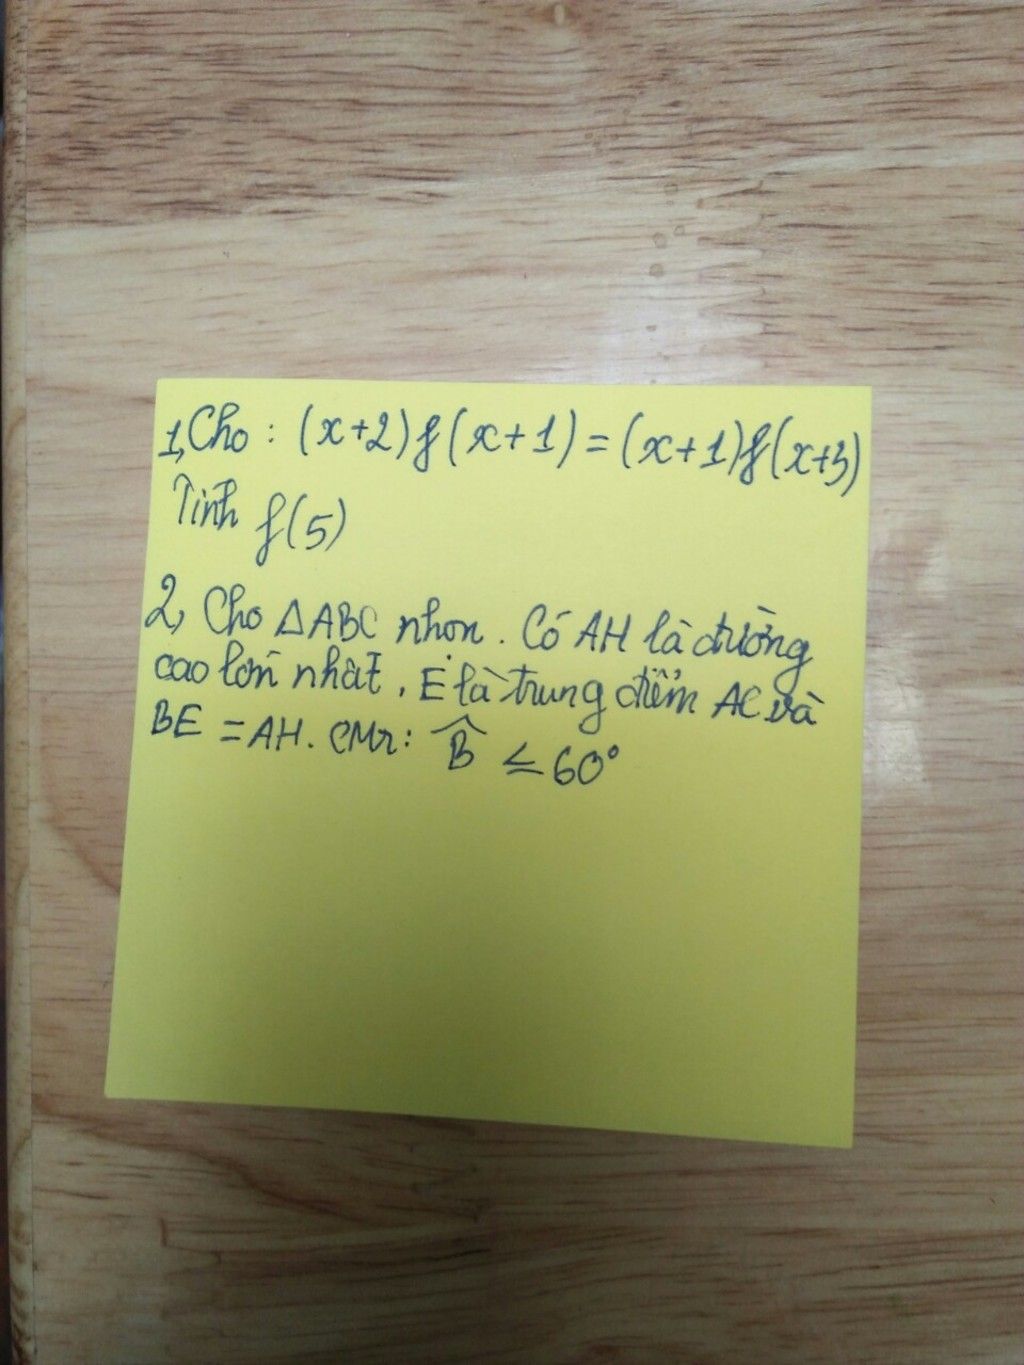 1, Cho : (x+2)f(x+1) = (x+1)f(x+3)
Tính f(5)
2, Cho ΔABC nhọn. Có AH là đường
cao lớn nhất, E là trung điểm AC và
BE = AH. CMr: B̂ ≤ 60°